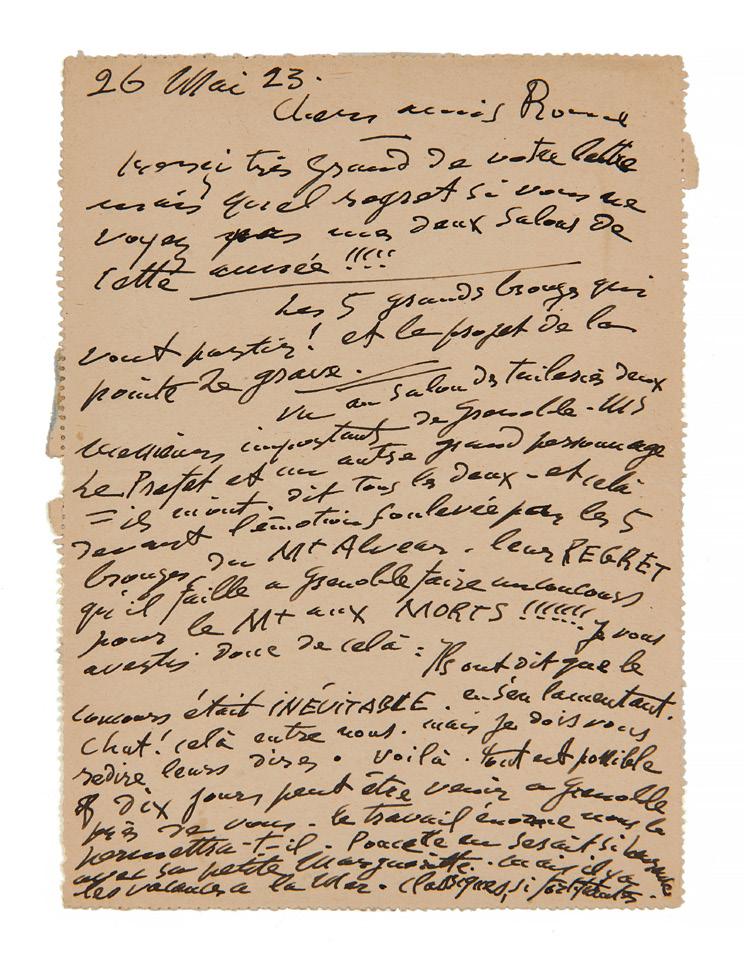 26 Mai 23.
Chers amis Rome
Merci très grand de votre lettre
mais quel regret si vous ne
voyez pas mes deux Salons de
cette année !!!!
Les 5 grands bronzes qui
vont partir! et le projet de la
pointe de grave.
Vu au Salon des Tuileries deux
Messieurs importants de Grenoble - MS
Le Prefet et un autre grand personnage
= ils m'ont dit tous les deux - et celà
devant l'émotion soulevée par les 5
bronzes du Mt Alvear. leur REGRET
qu'il faille a Grenoble faire un concours
pour le Mt aux MORTS !!!!!! Je vous
avertis donc de celà : Ils ont dit que le
concours était INÉVITABLE. en s'en lamentant.
Chut! celà entre nous. mais je dois vous
redire leurs dires. Voilà. tout est possible
dix jours peut être venir a Grenoble
près de vous. le travail énorme nous le
permettra-t-il. Poucette en serait si heureuse
avec sa petite Marguerite. mais il y a
les vacances a la Mer. Classiques, si fortifiantes.